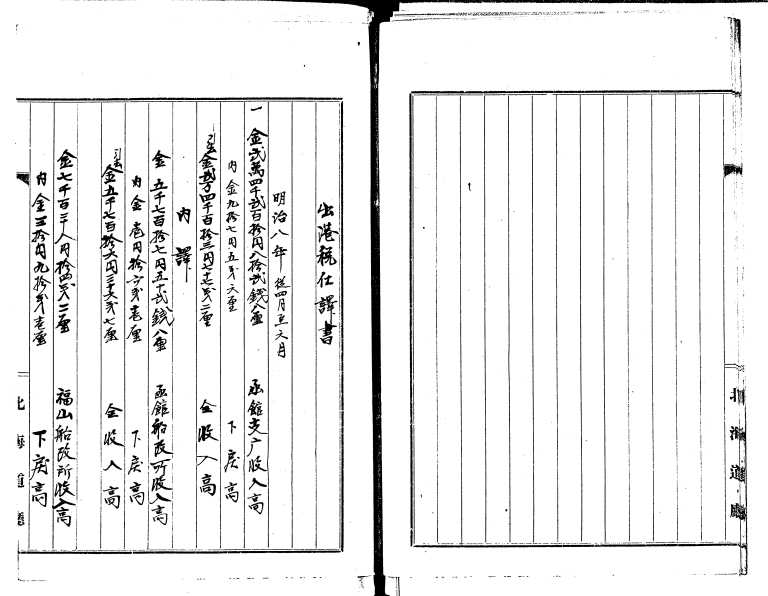 北海道廳
出港税仕譯書
明治八年 従四月至六月
一金弐萬四千弐百拾円八拾弐銭八厘 函館支庁收入高
内金九拾七円五銭六厘 下戻高
引去金弐万四千百拾三円七十七銭二厘 全收入高
内譯
金五千七百拾七円五十弐銭八厘 函館船改所收入高
内金壱円拾六銭壱厘 下戻高
引去金五千七百拾六円三十六銭七厘 全收入高
金七千百三十八円拾四銭二厘 福山船改所收入高
内金三拾円九拾銭壱厘 下戻高
北海道廳